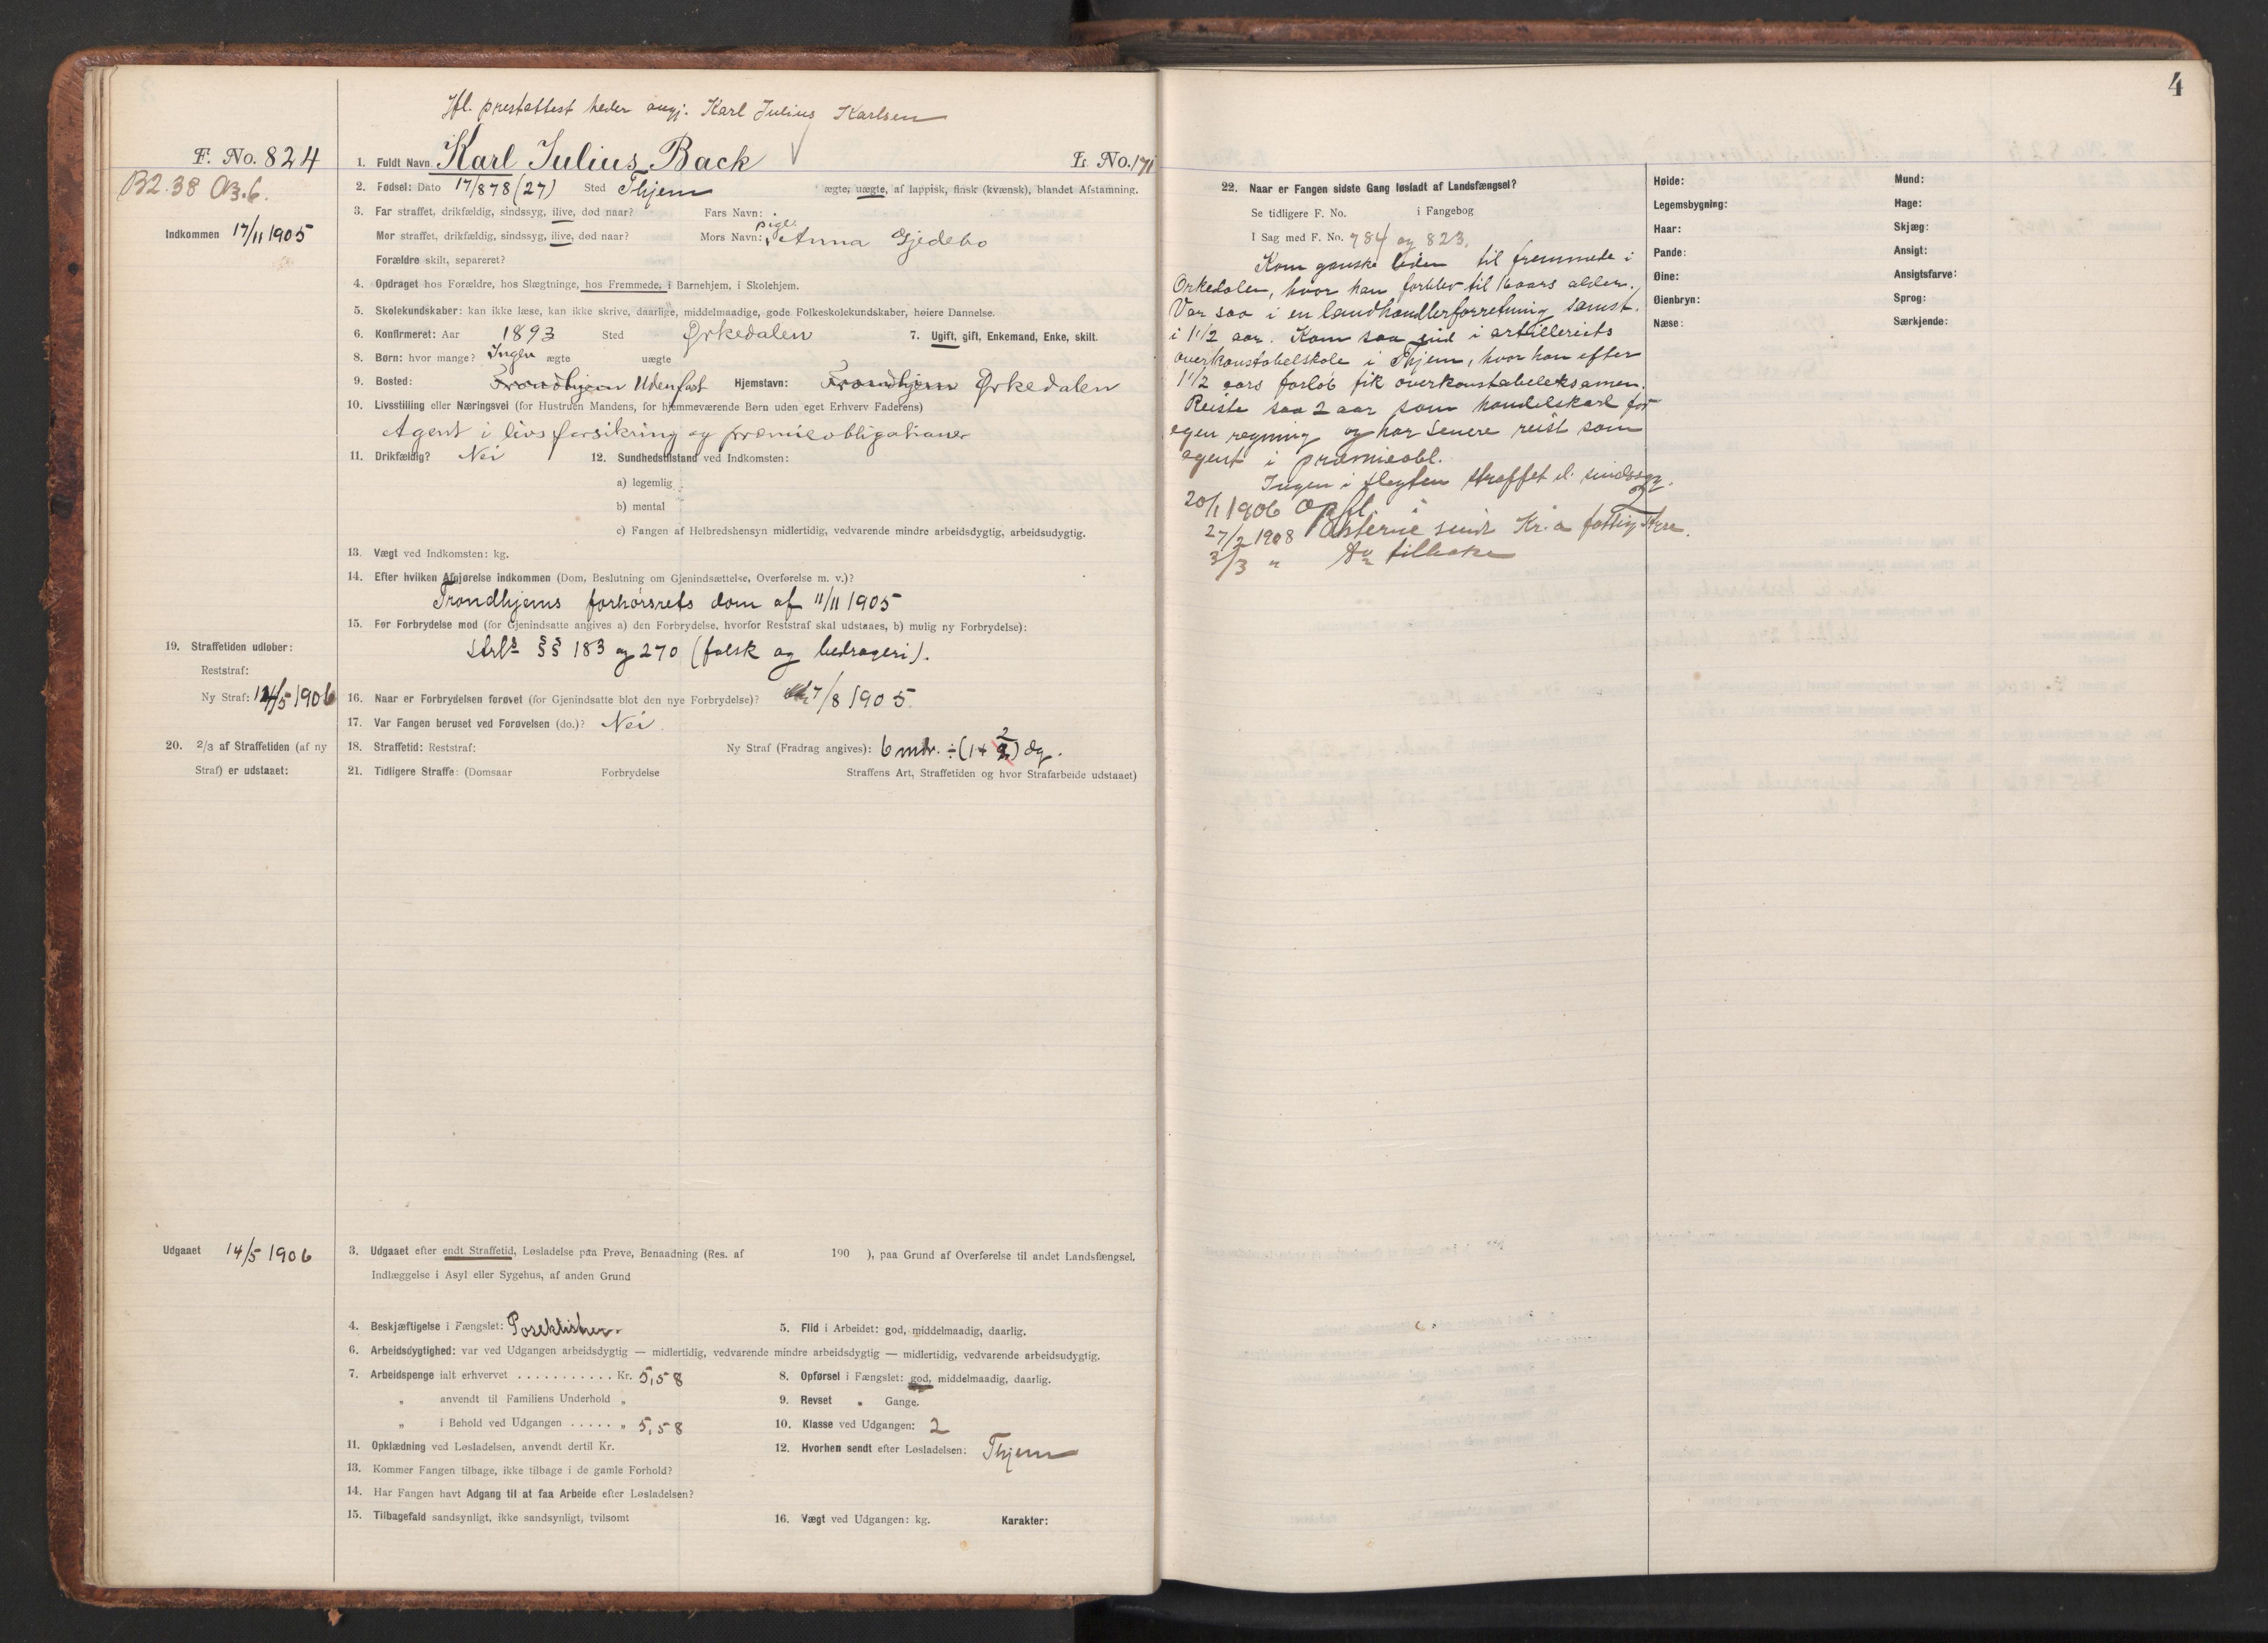 4
Ifl. prestattest heder angj. Karl Julius Karlsen
F. No. 824
1. Fuldt Navn Karl Julius Back
L. No. 171
B2.38 OB.6.
2. Fødsel: Dato 17/878 (27) Sted Thjem ægte, uægte, af lappisk, finsk (kvænsk), blandet Afstamning.
Indkommen 17/11 1905
3. Far straffet, drikfældig, sindssyg, ilive, død naar? Fars Navn:
Mor straffet, drikfældig, sindssyg, ilive, død naar? Mors Navn: pige Anna Gjedebo
Forældre skilt, separeret?
4. Opdraget hos Forældre, hos Slægtninge, hos Fremmede, i Barnehjem, i Skolehjem.
5. Skolekundskaber: kan ikke læse, kan ikke skrive, daarlige, middelmaadige, gode Folkeskolekundskaber, høiere Dannelse.
6. Konfirmeret: Aar 1893 Sted Ørkedalen 7. Ugift, gift, Enkemand, Enke, skilt.
8. Børn: hvor mange? Ingen ægte uægte
9. Bosted: Trondhjem Uden fast Hjemstavn: Trondhjem Ørkedalen
10. Livsstilling eller Næringsvei (for Hustruen Mandens, for hjemmeværende Børn uden eget Erhverv Faderens)
Agent i livsforsikring og præmieobligationer
11. Drikfældig? Nei 12. Sundhedstilstand ved Indkomsten:
a) legemlig
b) mental
c) Fangen af Helbredshensyn midlertidig, vedvarende mindre arbeidsdygtig, arbeidsudygtig.
13. Vægt ved Indkomsten: kg.
14. Efter hvilken Afgjørelse indkommen (Dom, Beslutning om Gjenindsættelse, Overførelse m. v.)?
Trondhjems forhørsrets dom af 11/11 1905
15. For Forbrydelse mod (for Gjenindsatte angives a) den Forbrydelse, hvorfor Reststraf skal udstaaes, b) mulig ny Forbrydelse):
Strl §§ 183 og 270 (falsk og bedrageri).
19. Straffetiden udløber:
Reststraf:
Ny Straf: 14/5 1906
16. Naar er Forbrydelsen forøvet (for Gjenindsatte blot den nye Forbrydelse)? 7/8 1905.
17. Var Fangen beruset ved Forøvelsen (do.)? Nei.
20. 2/3 af Straffetiden (af ny
Straf) er udstaaet:
18. Straffetid: Reststraf: Ny Straf (Fradrag angives): 6 mdr. ÷ (1+2) dg.
21. Tidligere Straffe: (Domsaar Forbrydelse Straffens Art, Straffetiden og hvor Strafarbeide udstaaet)
Udgaaet 14/5 1906
3. Udgaaet efter endt Straffetid, Løsladelse paa Prøve, Benaadning (Res. af 190 ), paa Grund af Overførelse til andet Landsfængsel,
Indlæggelse i Asyl eller Sygehus, af anden Grund
4. Beskjæftigelse i Fængslet: Poseklistrer. 5. Flid i Arbeidet: god, middelmaadig, daarlig.
6. Arbeidsdygtighed: var ved Udgangen arbeidsdygtig — midlertidig, vedvarende mindre arbeidsdygtig — midlertidig, vedvarende arbeidsudygtig.
7. Arbeidspenge ialt erhvervet . . . . . . . . . . . Kr. 5,58 8. Opførsel i Fængslet: god, middelmaadig, daarlig.
„ anvendt til Familiens Underhold „ 9. Revset „ Gange.
„ i Behold ved Udgangen . . . . . „ 5,58 10. Klasse ved Udgangen: 2
11. Opklædning ved Løsladelsen, anvendt dertil Kr. 12. Hvorhen sendt efter Løsladelsen: Thjem
13. Kommer Fangen tilbage, ikke tilbage i de gamle Forhold?
14. Har Fangen havt Adgang til at faa Arbeide efter Løsladelsen?
15. Tilbagefald sandsynligt, ikke sandsynligt, tvilsomt 16. Vægt ved Udgangen: kg. Karakter:
22. Naar er Fangen sidste Gang løsladt af Landsfængsel?
Se tidligere F. No. i Fangebog
I Sag med F. No. 784 og 823.
Kom ganske liden til fremmede i
Orkedalen, hvor han forblev til 16 aars alder.
Var saa i en landhandlerforretning samst.
i 1 1/2 aar. Kom saa ind i artilleriets
overkonstabelskole i Thjem, hvor han efter
1 1/2 aars forløb fik overkonstabeleksamen.
Reiste saa 2 aar som handelskarl for
egen regning og har senere reist som
agent i præmieobl.
Ingen i slegten straffet el. sindssyg.
20/1 1906 Opfl.
27/2 1908 Akterne sendt Kr.a fattigstyre.
3/3 " do tilbake
Høide:
Legemsbygning:
Haar:
Pande:
Øine:
Øienbryn:
Næse:
Mund:
Hage:
Skjæg:
Ansigt:
Ansigtsfarve:
Sprog:
Særkjende: